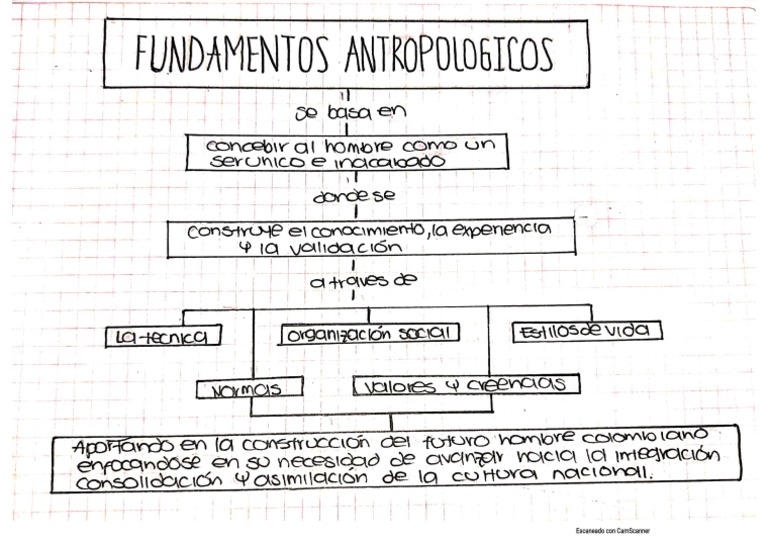 FUNDAMENTOS ANTROPOLOGICOS
se basa en
concebir al hombre como un
ser unico e inacabado
donde se
construye el conocimiento, la experiencia
y la validación
a traves de
La tecnica
organización social
Estilos de vida
Normas
valores y creencias
Aportando en la construcción del futuro hombre colombiano
enfocandose en su necesidad de avanzar hacia la integración
consolidación y asimilación de la cultura nacional.
Escaneado con CamScanner